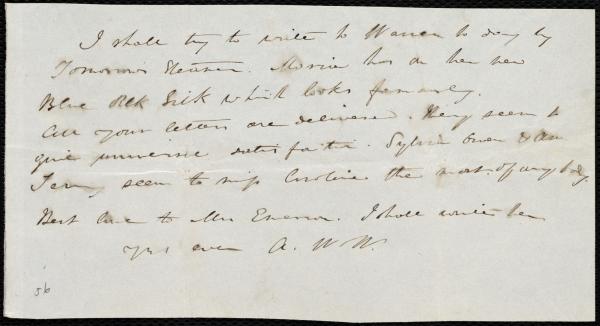 I shall try to write to Warren to day by
Tomorrow's Steamer. Maria has on her new
Blue Silk which looks famously.
All your letters are delivered. They seem to
give universal satisfaction. Sylvia Owen & Ann
Terry seem to miss Caroline the most of any body.
Best love to Mrs Emerson. I shall write her
Yrs ever A. W. W.
56